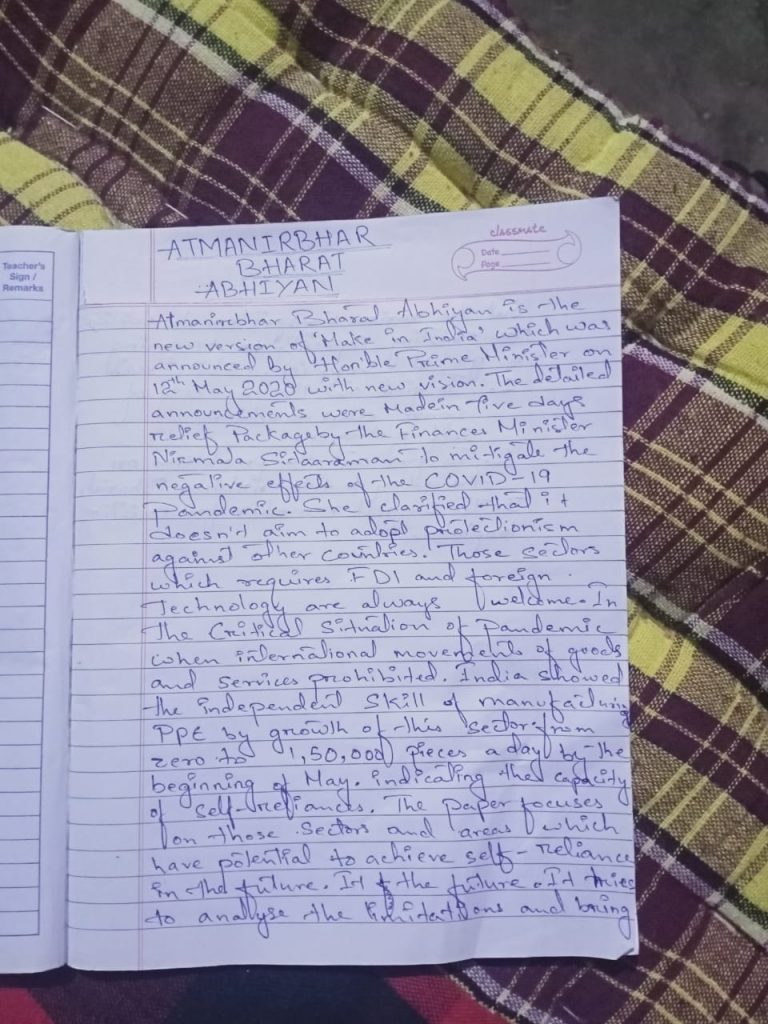 Teacher's
Sign /
Remarks
classmate
Date
Page
ATMANIRBHAR
BHARAT
ABHIYAN
Atmanirbhar Bharat Abhiyan is the
new version of 'Make in India' which was
announced by Hon'ble Prime Minister on
12th May 2020 with new vision. The detailed
announcements were Madein five days
relief Packageby the Finances Minister
Nirmala Sitaaraman to mitigate the
negative effects of the COVID-19
Pandemic. She clarified that it
doesn't aim to adopt protectionism
against other countries. Those sectors
which requires FDI and foreign
Technology are always welcome. In
the Critical Situation of Pandemic
when international movements of goods
and services prohibited. India showed
the independent skill of manufacturing
PPE by growth of this sector from
zero to 1,50,000 pieces a day by the
beginning of May. indicating the capacity
of self-reliances. The paper focuses
on those sectors and areas which
have potential to achieve self-reliance
in the future. It the future. It tries
to analyse the limitations and bring